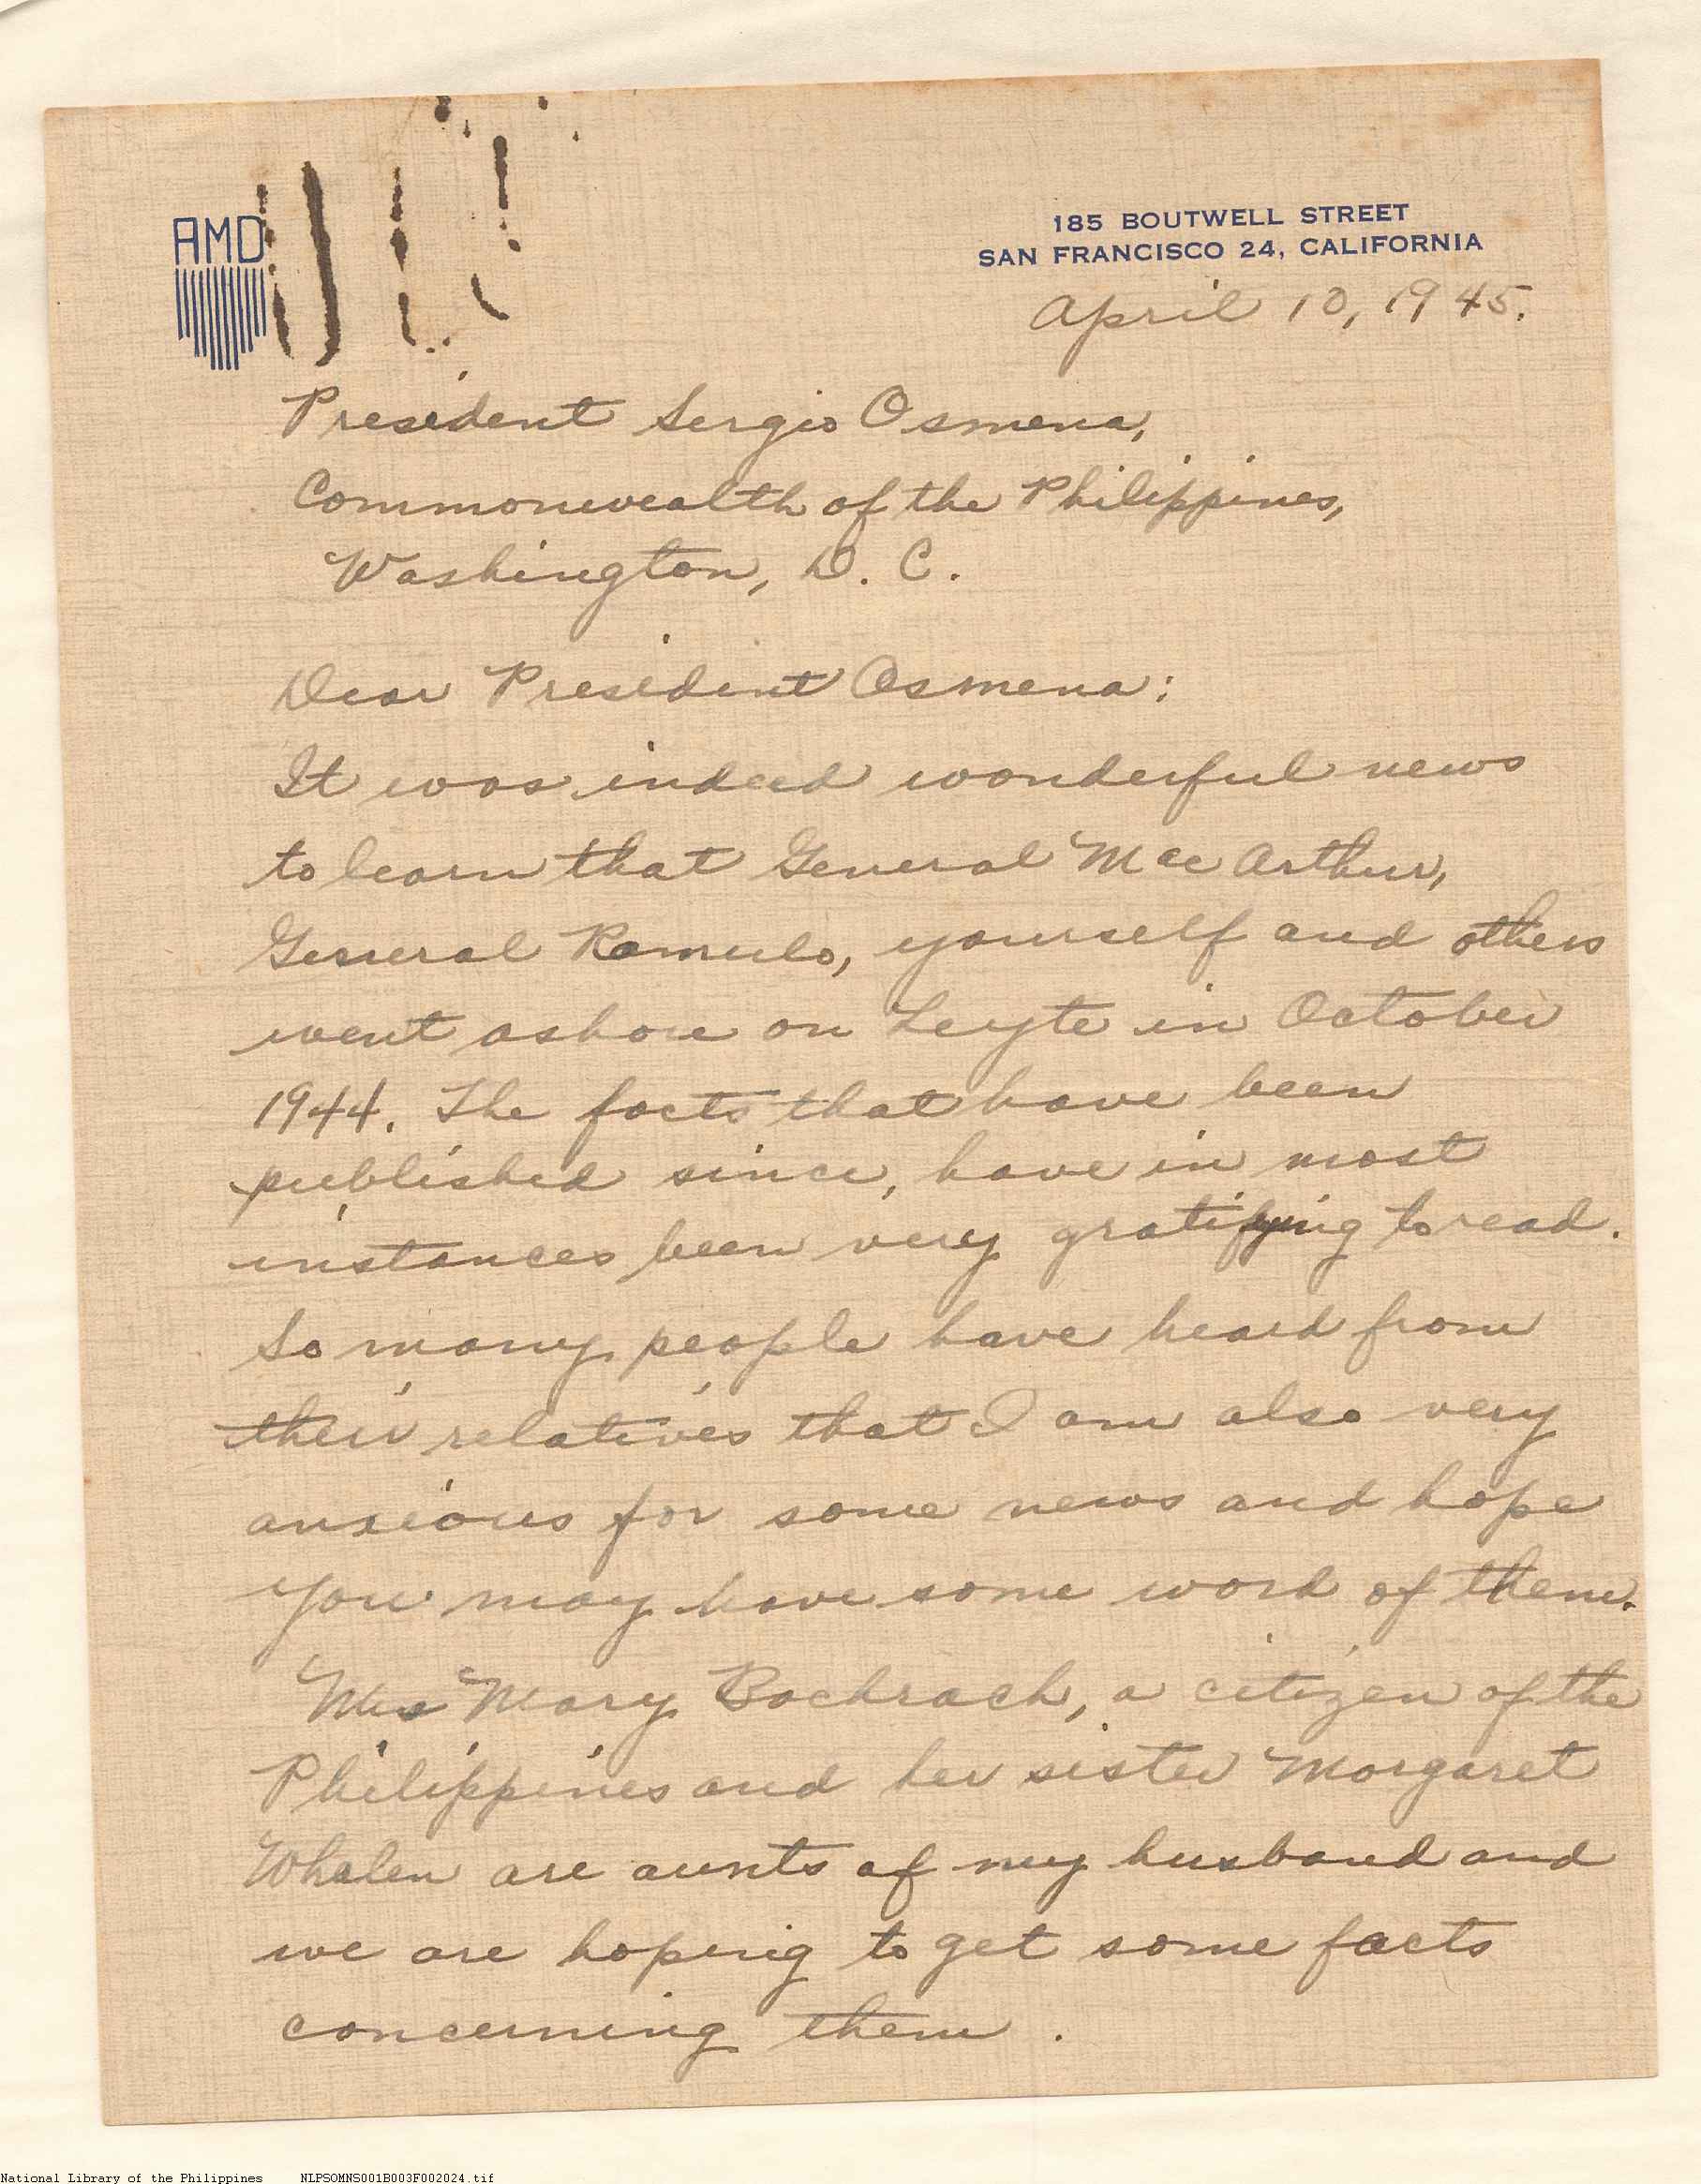 AMD
185 BOUTWELL STREET
SAN FRANCISCO 24, CALIFORNIA
April 10, 1945.
President Sergio Osmena,
Commonwealth of the Philippines,
Washington, D. C.
Dear President Osmena:
It was indeed wonderful news
to learn that General Mac Arthur,
General Romulo, yourself and others
went ashore on Leyte in October
1944. The facts that have been
published since, have in most
instances been very gratifying to read.
So many people have heard from
their relatives that I am also very
anxious for some news and hope
you may have some word of them.
Mrs Mary Bachrach, a citizen of the
Philippines and her sister Margaret
Whalen are aunts of my husband and
we are hoping to get some facts
concerning them.
National Library of the Philippines NLPSOMNS001B003F002024.tif